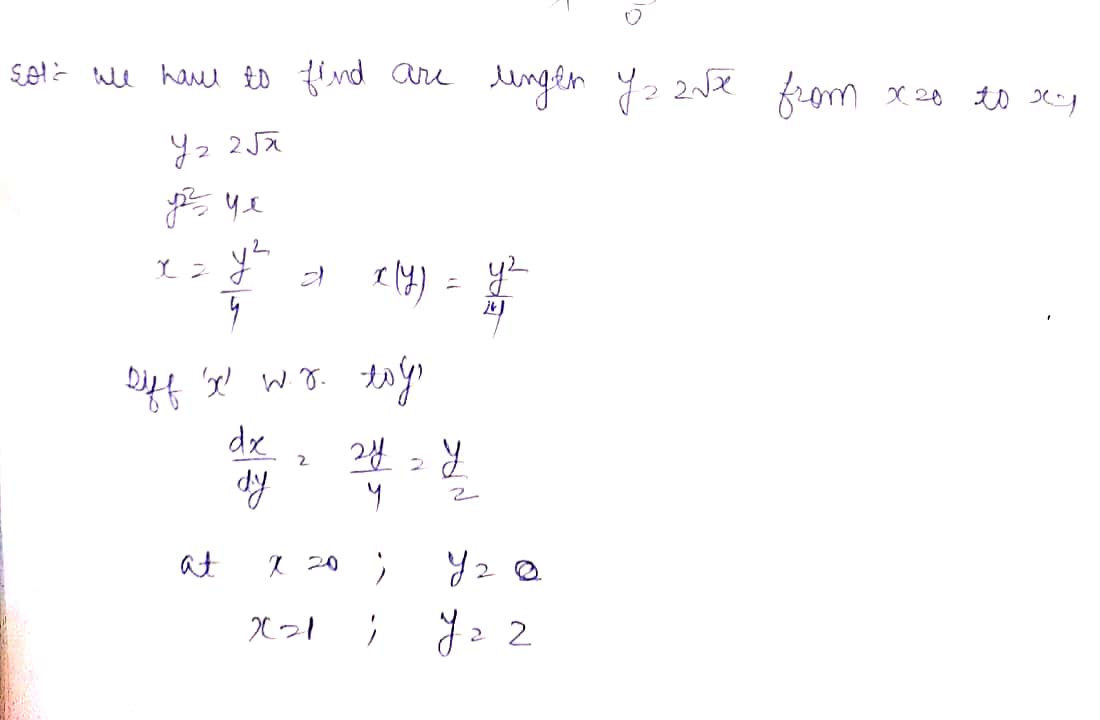 Sol:- We have to find arc length y = 2√x from x=0 to x=1
y = 2√x
y² = 4x
x = y²/4 ⇒ x(y) = y²/4
Diff 'x' w.r. to 'y'
dx/dy = 2y/4 = y/2
at x=0 ; y = 0
x=1 ; y = 2